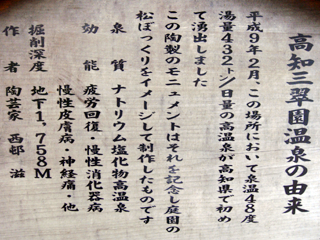 高知三翠園温泉の由来
平成9年2月、この場所において泉温48度
湯量432トン/日量の高温泉が高知県で初め
て湧出しました
この陶製のモニュメントはそれを記念し庭園の
松ぼっくりをイメージして制作したものです
泉質 ナトリウム塩化物高温泉
効能 疲労回復・慢性消化器病
慢性皮膚病・神経痛・他
掘削深度 地下1,758M
作者 陶芸家 西邨 滋